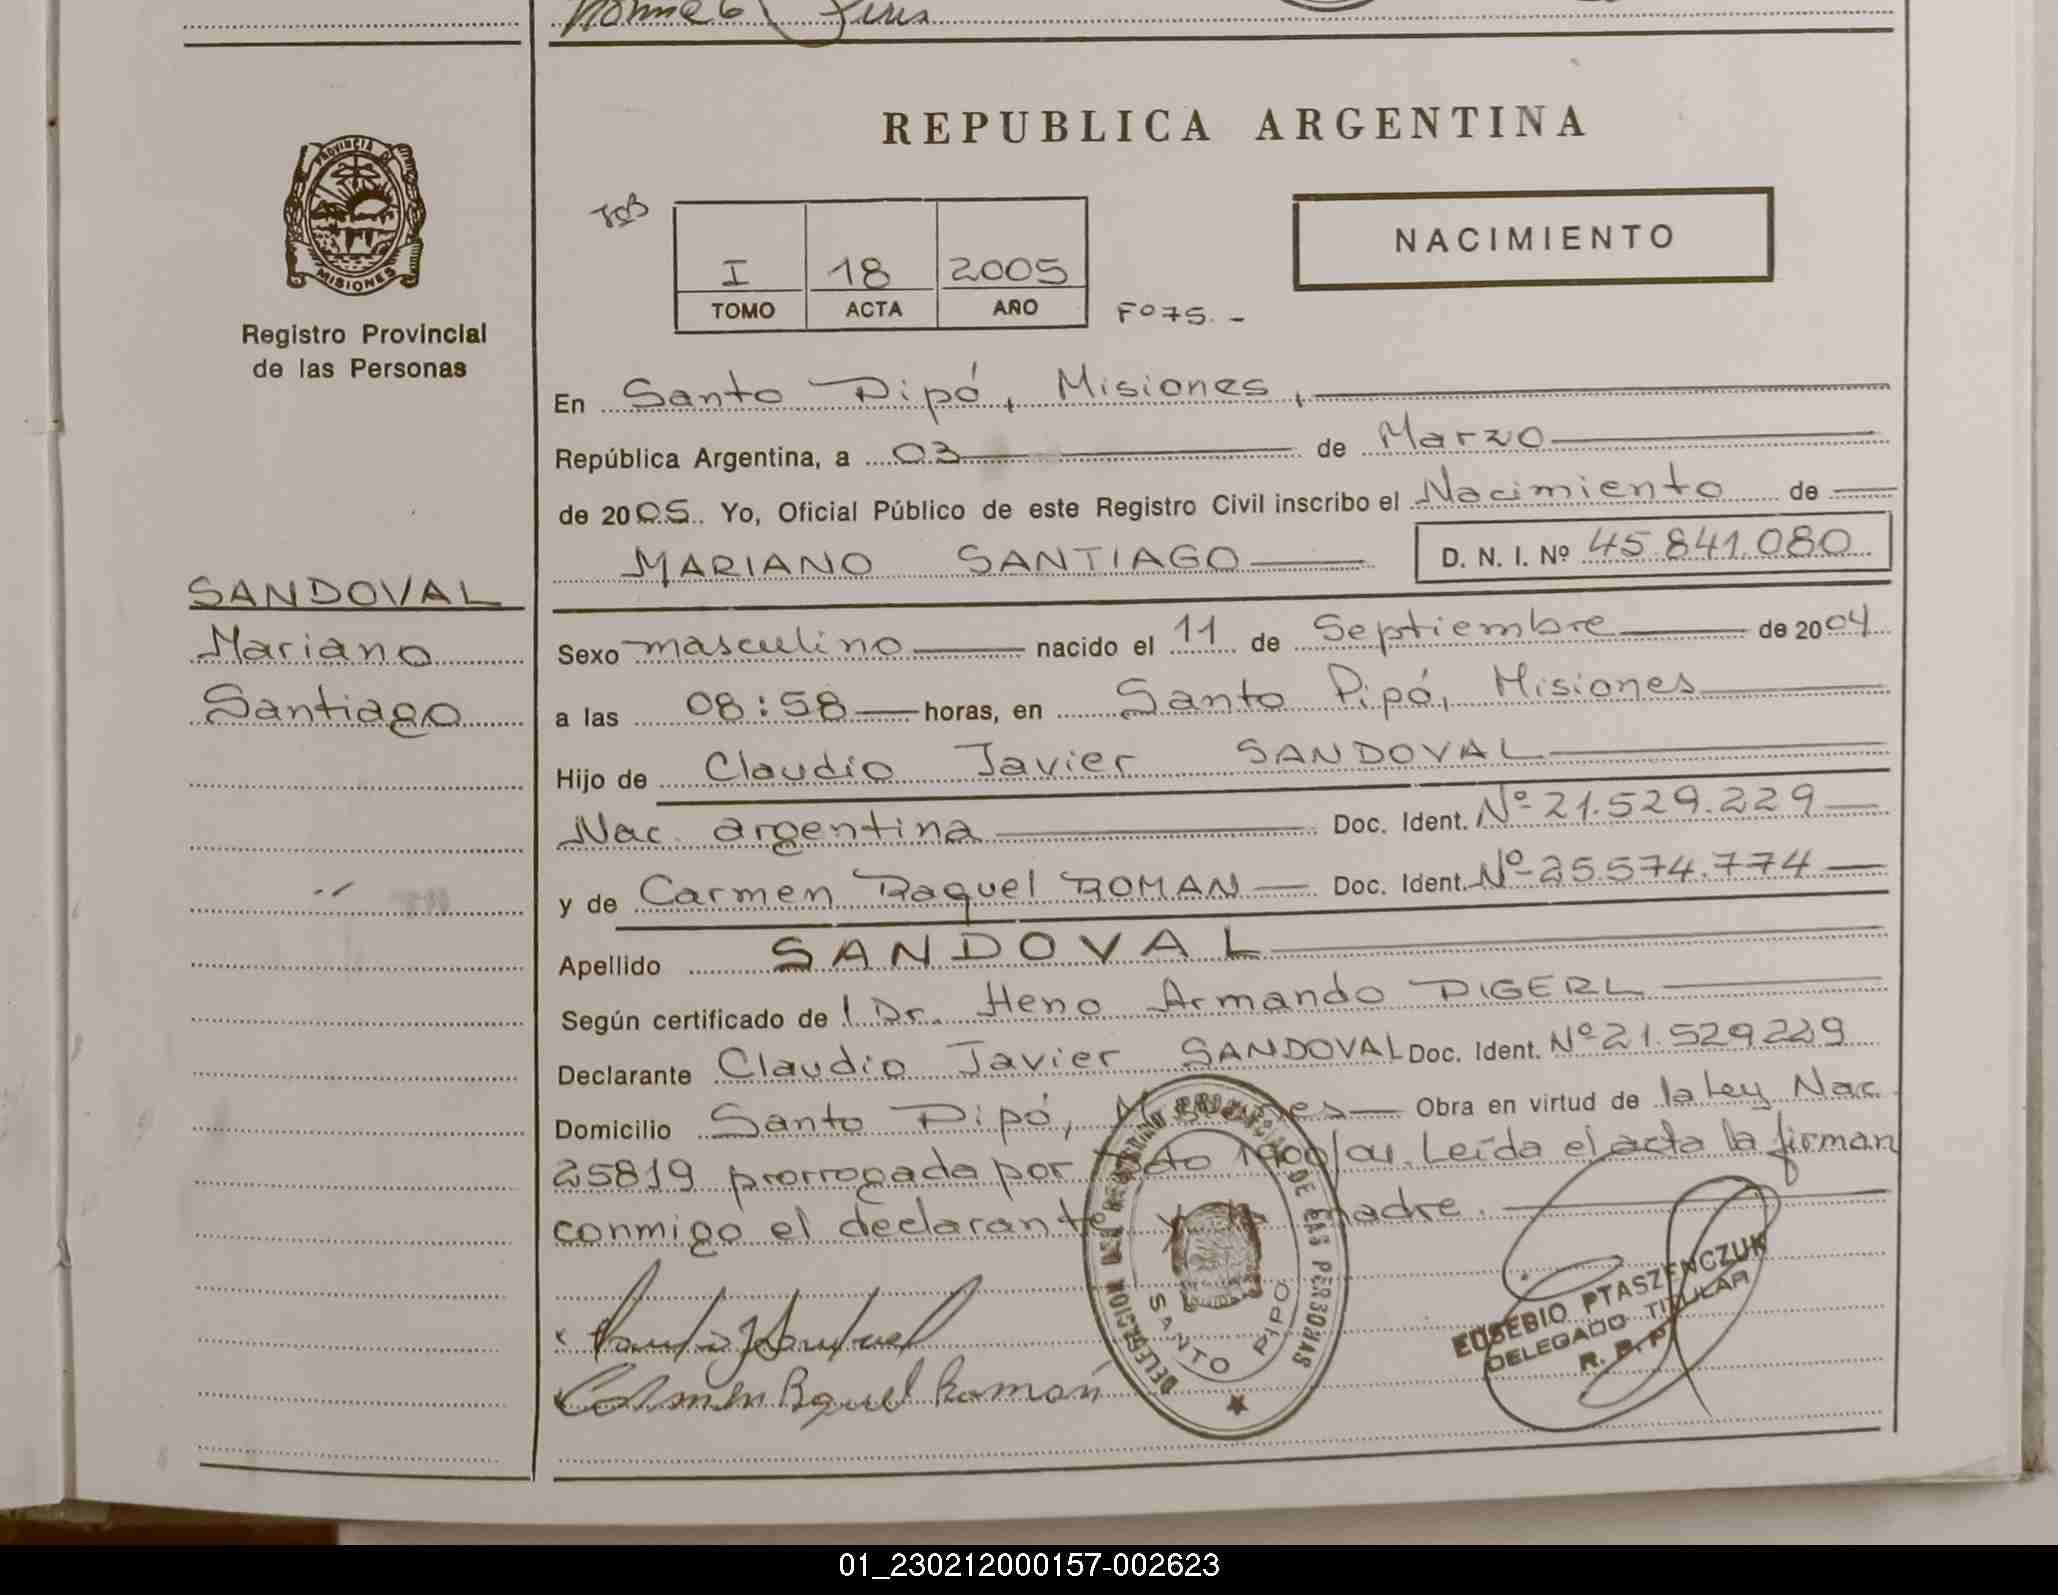 PROVINCIA DE
MISIONES
Registro Provincial
de las Personas
SANDOVAL
Mariano
Santiago
REPUBLICA ARGENTINA
I 18 2005
TOMO ACTA AÑO
Fº 75.-
NACIMIENTO
En Santo Pipó, Misiones,
República Argentina, a 03 de Marzo
de 2005. Yo, Oficial Público de este Registro Civil inscribo el Nacimiento de
MARIANO SANTIAGO D. N. I. Nº 45.841.080
Sexo masculino nacido el 11 de Septiembre de 2004
a las 08:58 horas, en Santo Pipó, Misiones
Hijo de Claudio Javier SANDOVAL
Nac. argentina Doc. Ident. Nº 21.529.229
y de Carmen Raquel ROMAN Doc. Ident. Nº 25.574.774
Apellido SANDOVAL
Según certificado de l Dr. Heno Armando DIGERL
Declarante Claudio Javier SANDOVAL Doc. Ident. Nº 21.529229
Domicilio Santo Pipó, Misiones Obra en virtud de la Ley Nac
25819 prorrogada por Dcto 1900/04. Leída el acta la firman
conmigo el declarante y la madre.
Carmen Raquel Román
DELEGACION DEL REGISTRO PROVINCIAL DE LAS PERSONAS
SANTO PIPO
EUSEBIO PTASZENCZUK
DELEGADO TITULAR
R. P. P.
01_230212000157-002623